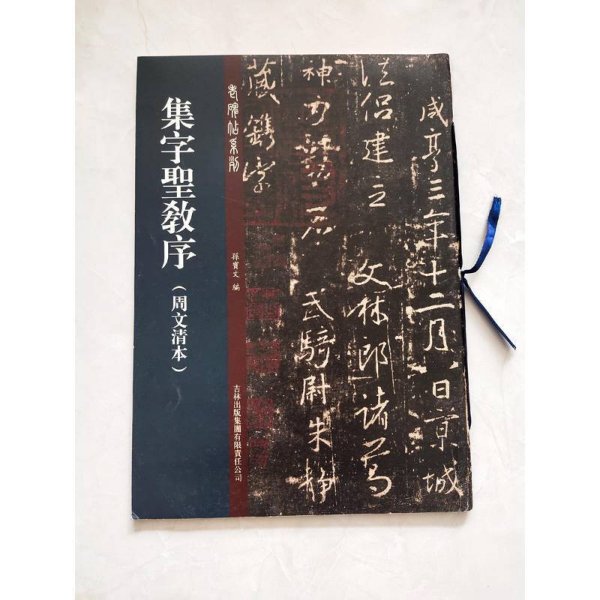 咸亨三年十二月日京城
法侶建立 文林郎諸葛
神力勒石 武騎尉朱靜
藏鐫字
老碑帖系列
孫寶文 編
吉林出版集團有限責任公司
集字聖教序
（周文清本）